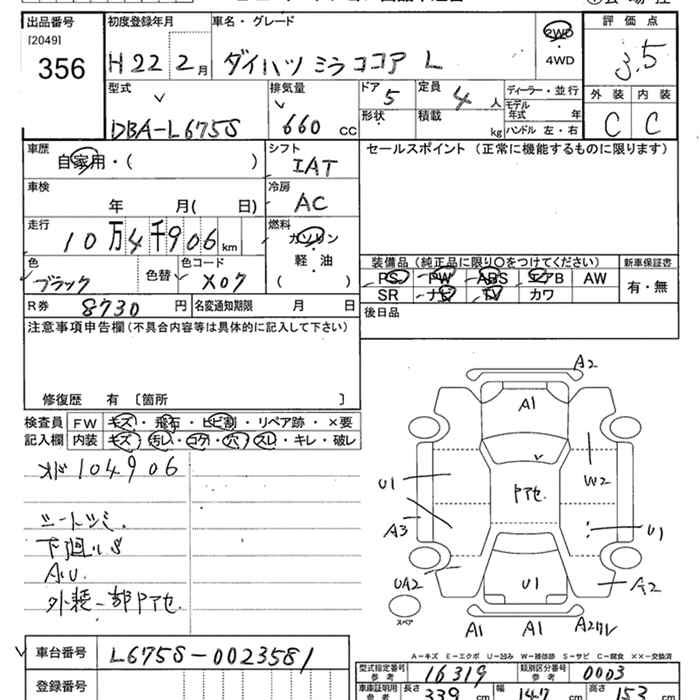 出品番号
[2049]
356
初度登録年月
H22年2月
車名・グレード
ダイハツ ミラココア L
2WD
4WD
評価点
3.5
型式
DBA-L675S
排気量
660 CC
ドア
5
形状
定員
4 人
積載
kg
ディーラー・並行
モデル
年式 年
ハンドル 左・右
外装 内装
C C
車歴
自家用・( )
シフト
IAT
セールスポイント (正常に機能するものに限ります)
車検
年 月( 日)
冷房
AC
走行
10万4千906 km
燃料
ガソリン
軽・油
( )
色
ブラック
色替
色コード
X07
装備品(純正品に限り○をつけてください)
新車保証書
PS PW ABS エアB AW
有・無
SR ナビ TV カワ
R券
8730 円
名変通知期限 月 日
後日品
注意事項申告欄(不具合内容等は具体的に記入して下さい)
修復歴 有 [箇所 ]
検査員
記入欄
FW キズ・飛石・ヒビ割・リペア跡・×要
内装 キズ・汚レ・コゲ・穴・スレ・キレ・破レ
メド 104906
シートシミ.
下廻りS
AU.
外装一部Pアセ.
A2
A1
U1
W2
Pアセ.
A3
U1
UA2
U1
A2
スペア
A1 A1 A2ワレ
A-キズ E-エクボ U-凹み W-補修跡 S-サビ C-腐食 XX-交換済
車台番号
L675S-0023581
登録番号
型式指定番号
参考
16319
類別区分番号
参考
0003
車庫証明用
参考
長さ 339 cm
幅 147 cm
高さ 153 cm